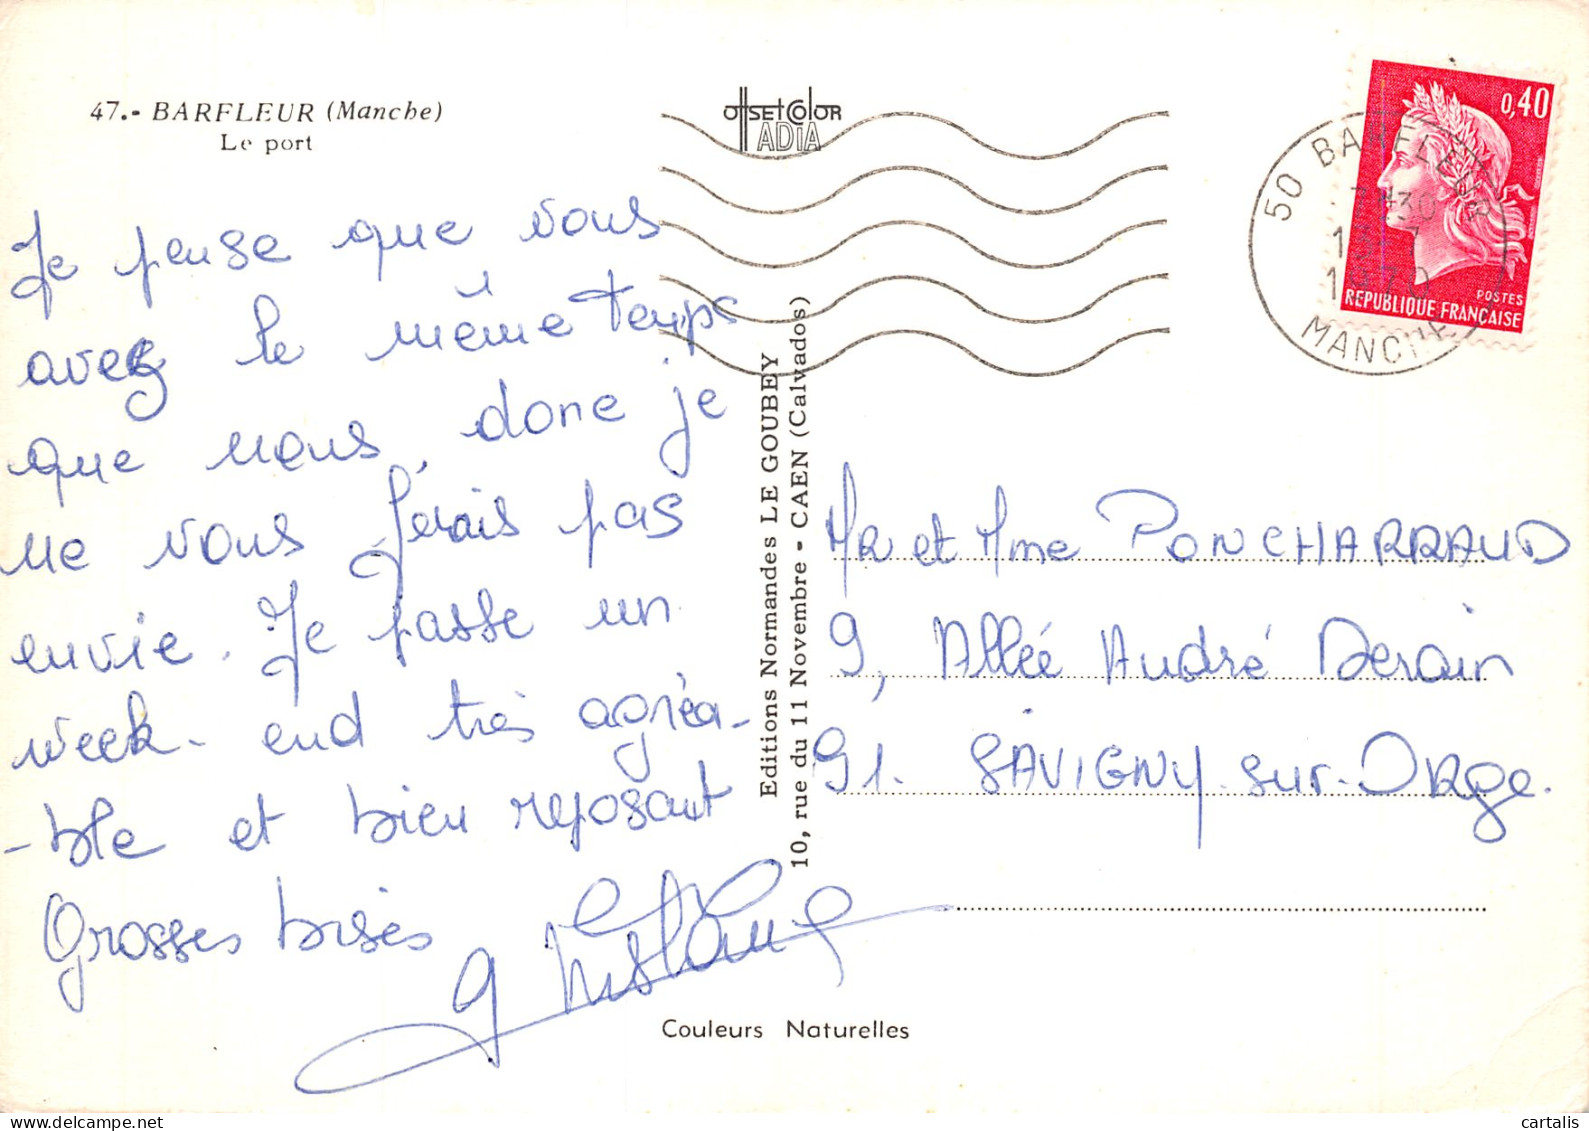 47.- BARFLEUR (Manche)
Le port
OffSEtColoR
ADIA
Je pense que vous
avez le même temps
que nous, donc je
ne vous ferais pas
envie. Je passe un
week-end très agréa-
-ble et bien reposant
Grosses bises
Editions Normandes LE GOUBEY
10, rue du 11 Novembre - CAEN (Calvados)
Couleurs Naturelles
0,40
POSTES
REPUBLIQUE FRANÇAISE
50 BARFLEUR
MANCHE
MR et Mme PONCHARRAUD
9, Allée André Derain
91. SAVIGNY-sur-ORge.
cartalis